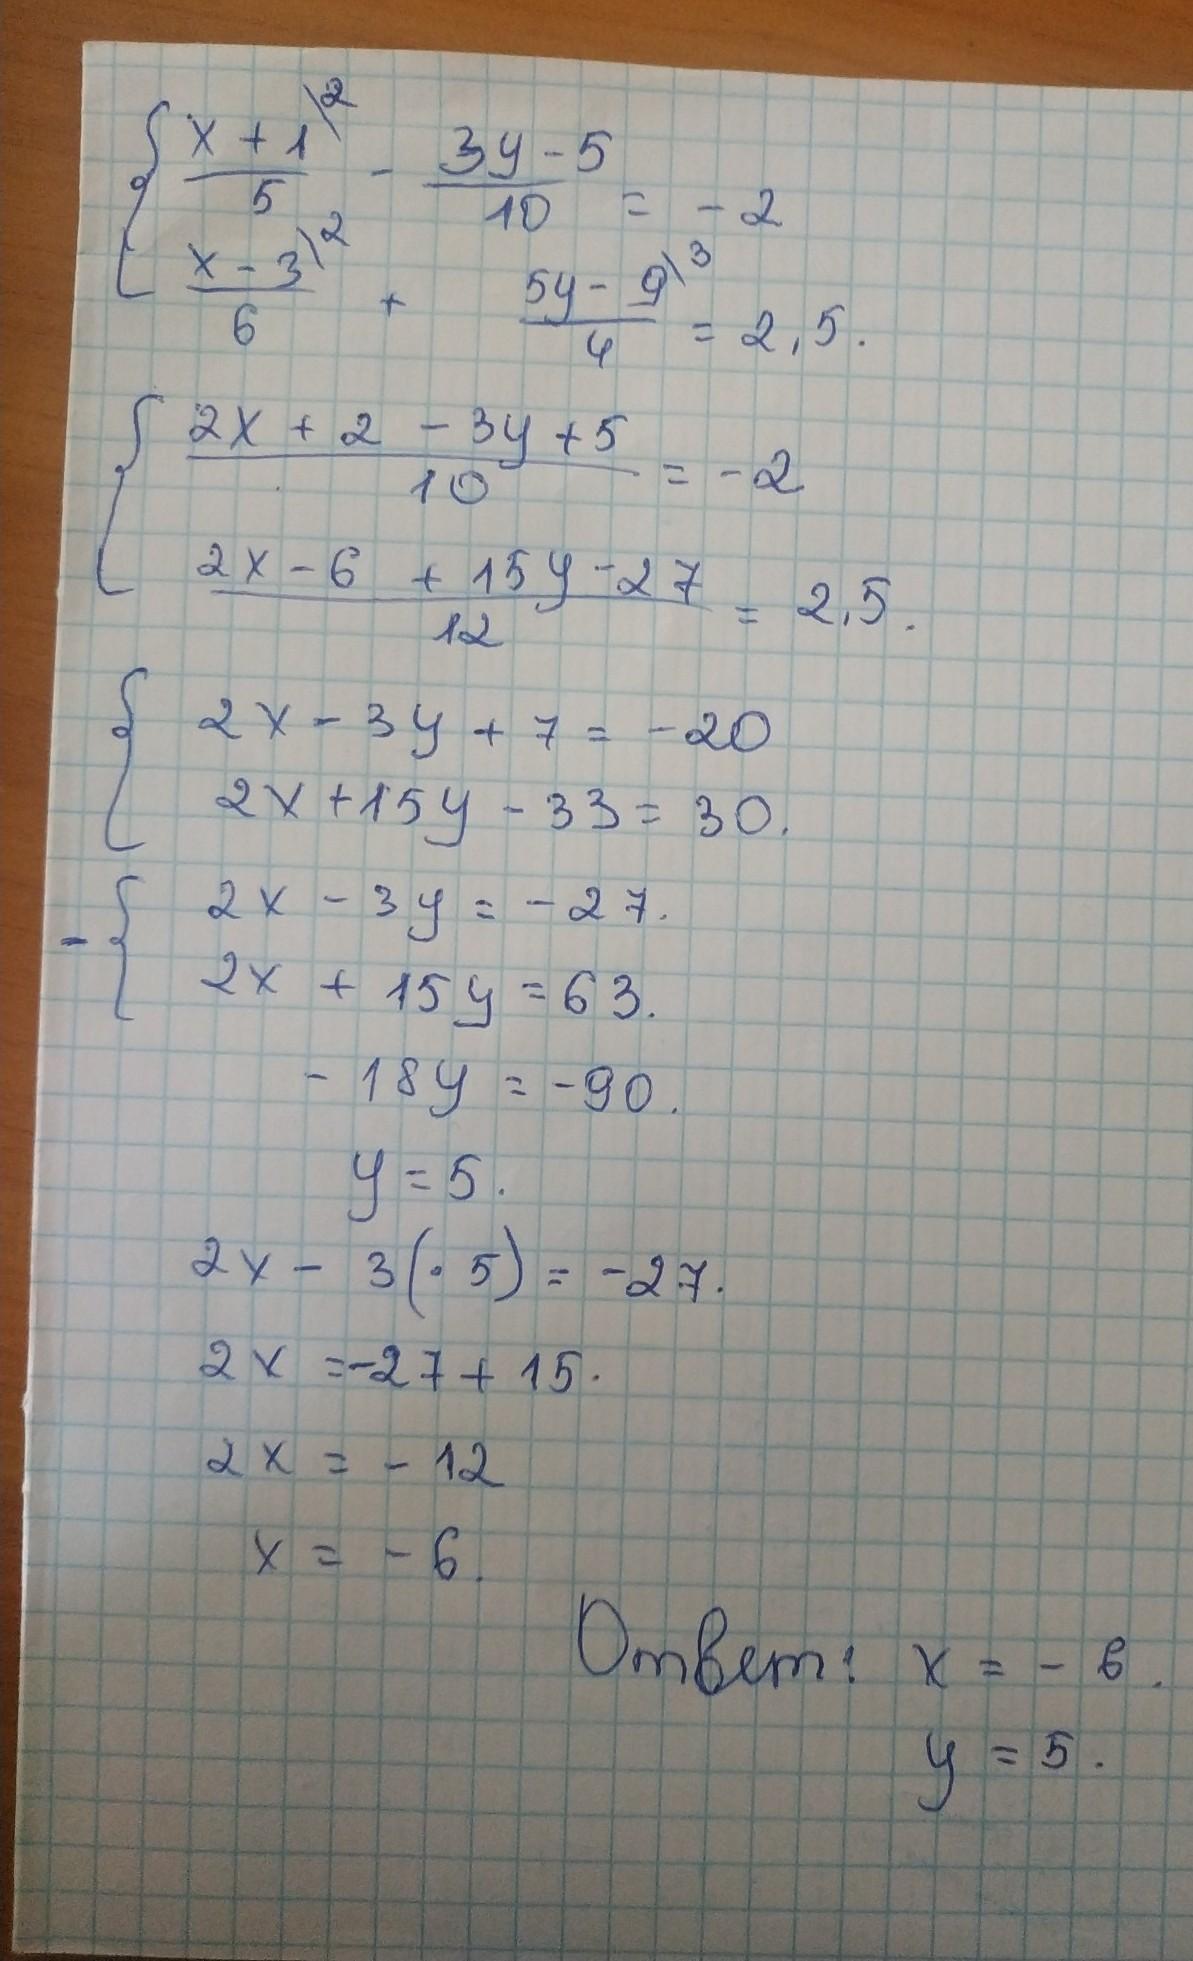 x + 1\2 / 5 - 3y - 5 / 10 = - 2
x - 3\2 / 6 + 5y - 9\3 / 4 = 2,5.
2x + 2 - 3y + 5 / 10 = - 2
2x - 6 + 15y - 27 / 12 = 2,5.
2x - 3y + 7 = - 20
2x + 15y - 33 = 30.
- { 2x - 3y = - 27.
2x + 15y = 63.
- 18y = - 90.
y = 5.
2x - 3(· 5) = - 27.
2x = -27 + 15.
2x = - 12
x = - 6.
Ответ: x = - 6.
y = 5.